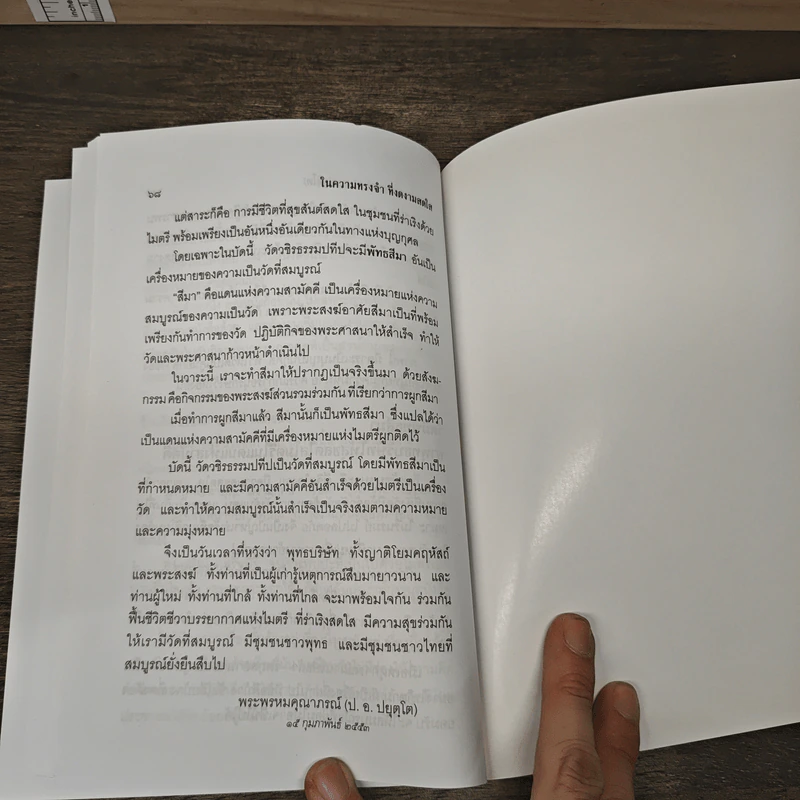 ๖๘
ในความทรงจำ ที่งดงามสดใส
แต่สาระก็คือ การมีชีวิตที่สุขสันต์สดใส ในชุมชนที่ร่าเริงด้วย
ไมตรี พร้อมเพรียงเป็นอันหนึ่งอันเดียวกันในทางแห่งบุญกุศล
โดยเฉพาะในบัดนี้ วัดวชิรธรรมปทีปจะมีพัทธสีมา อันเป็น
เครื่องหมายของความเป็นวัดที่สมบูรณ์
“สีมา” คือแดนแห่งความสามัคคี เป็นเครื่องหมายแห่งความ
สมบูรณ์ของความเป็นวัด เพราะพระสงฆ์อาศัยสีมาเป็นที่พร้อม
เพรียงกันทำการของวัด ปฏิบัติกิจของพระศาสนาให้สำเร็จ ทำให้
วัดและพระศาสนาก้าวหน้าดำเนินไป
ในวาระนี้ เราจะทำสีมาให้ปรากฏเป็นจริงขึ้นมา ด้วยสังฆ-
กรรม คือกิจกรรมของพระสงฆ์ส่วนรวมร่วมกัน ที่เรียกว่าการผูกสีมา
เมื่อทำการผูกสีมาแล้ว สีมานั้นก็เป็นพัทธสีมา ซึ่งแปลได้ว่า
เป็นแดนแห่งความสามัคคีที่มีเครื่องหมายแห่งไมตรีผูกติดไว้
บัดนี้ วัดวชิรธรรมปทีปเป็นวัดที่สมบูรณ์ โดยมีพัทธสีมาเป็น
ที่กำหนดหมาย และมีความสามัคคีอันสำเร็จด้วยไมตรีเป็นเครื่อง
วัด และทำให้ความสมบูรณ์นั้นสำเร็จเป็นจริงสมตามความหมาย
และความมุ่งหมาย
จึงเป็นวันเวลาที่หวังว่า พุทธบริษัท ทั้งญาติโยมคฤหัสถ์
และพระสงฆ์ ทั้งท่านที่เป็นผู้เก่ารู้เหตุการณ์สืบมายาวนาน และ
ท่านผู้ใหม่ ทั้งท่านที่ใกล้ ทั้งท่านที่ไกล จะมาพร้อมใจกัน ร่วมกัน
ฟื้นชีวิตชีวาบรรยากาศแห่งไมตรี ที่ร่าเริงสดใส มีความสุขร่วมกัน
ให้เรามีวัดที่สมบูรณ์ มีชุมชนชาวพุทธ และมีชุมชนชาวไทยที่
สมบูรณ์ยั่งยืนสืบไป
พระพรหมคุณาภรณ์ (ป. อ. ปยุตฺโต)
๑๕ กุมภาพันธ์ ๒๕๕๓